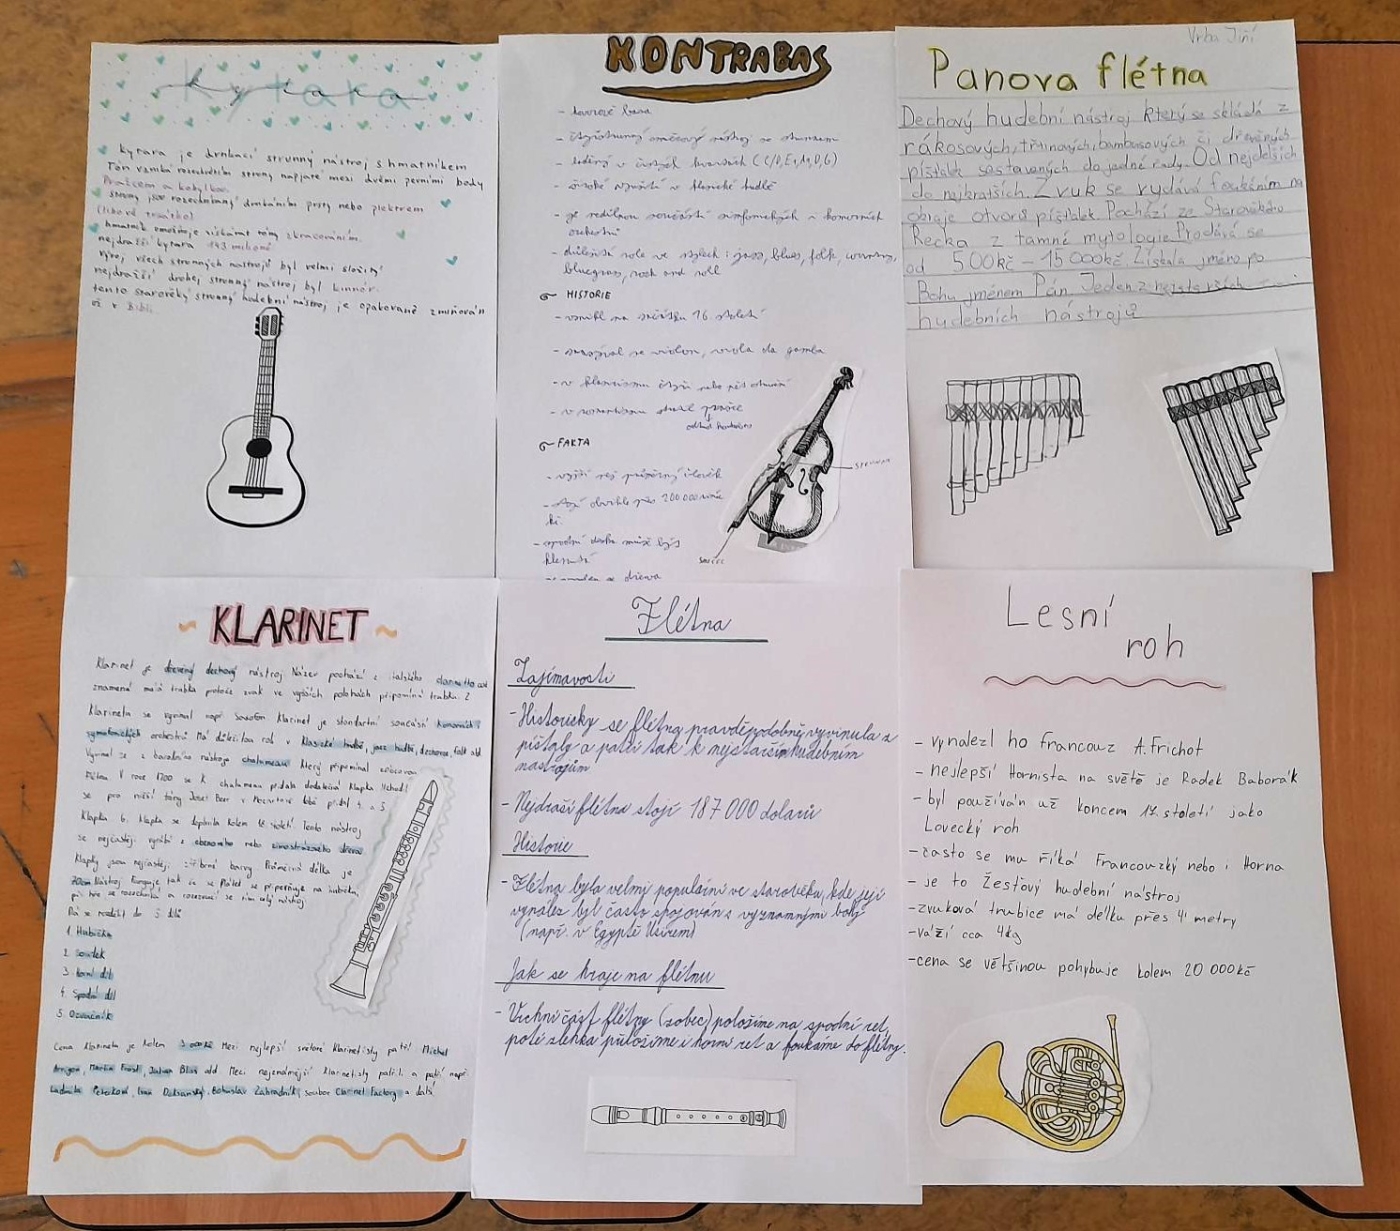 Kytara
Kytara je drnkací strunný nástroj s hmatníkem
Tón vzniká rozechvěním struny napjaté mezi dvěmi pevnými body
Pražcem a kobylkou.
struny jsou rozechvívány drnkáním prsty nebo plektrem
(lidově trsátko)
hmatník umožňuje získávat tóny zkracováním.
nejdražší kytara 143 milionů
vývoj všech strunných nástrojů byl velmi složitý
nejdražší drobej strunný nástroj byl kinnór.
tento starověký strunný hudební nástroj je opakovaně zmiňován
v Bibli
KONTRABAS
- čtyřstrunný smyčcový nástroj se strunami
- laděný v čistých kvartách (C/D, E, A, D, G)
- široké využití v klasické hudbě
- je nedílnou součástí symfonických i komorních
orchestrů
- důležitá role ve stylech: jazz, blues, folk, country,
bluegrass, rock and roll
HISTORIE
- vznikl na začátku 16. století
- nazýval se violon, viola da gamba
- v klasicismu čtyři nebo pět strun
- v romantismu
FAKTA
- vyšší než průměrný člověk
200 000
- spodní deska může být
klenutá
smyčec
Vrba Jiří
Panova flétna
Dechový hudební nástroj který se skládá z
rákosových, třtinových, bambusových či dřevěných
píšťalek sestavených do jedné řady. Od nejdelších
do nejkratších. Zvuk se vydává foukáním na
okraje otvorů píšťalek. Pochází ze Starověkého
Řecka z tamné mytologie. Prodává se
od 500kč - 15 000kč. Získala jméno po
Bohu jménem Pán. Jeden z nejstarších
hudebních nástrojů
~ KLARINET ~
Klarinet je dřevěný dechový nástroj Název pochází z italského clarinetto což
znamená malá trubka protože zvuk ve vyšších polohách připomíná trubku. Z
Klarinetu se vyvinul např. Saxofon Klarinet je standartní součástí komorních i
symfonických orchestrů Má důležitou roli v klasické hudbě, jazz hudbě, dechovce, folk atd
Vyvinul se z barokního nástroje chalumeau který připomínal zobcovou
flétnu. V roce 1700 se k chalumeau přidala dodatečná klapka
se pro nižší tóny Josef Beer v přidal 4. a 5.
klapku 6. klapka se doplnila kolem 18. století Tento nástroj
se nejčastěji vyrábí z ebenového nebo dřeva
Klapky jsou nejčastěji stříbrné barvy Průměrná délka je
Dá se rozdělit do 5 dílů
1. Hubička
2. Soudek
3. horní díl
4. Spodní díl
5. Ozvučník
Cena klarinetu je kolem Mezi nejlepší světové klarinetisty patří Michael
Arrigon, Martin Fröst, Julian Bliss atd. Mezi nejznámější klarinetisty patřili a patří např.
Ludmila Peterková, Ivan Doksanský, Bohuslav Zahradník, soubor Clarinet Factory a další
Flétna
Zajímavosti
- Historicky se flétna pravděpodobně vyvinula z
píšťaly a patří tak k nejstarším hudebním
nástrojům
- Nejdražší flétna stojí 187 000 dolarů
Historie
- Flétna byla velmi populární ve starověku, kde její
vynález byl často spojován s významnými bohy
(např. v Egyptě Usirem)
Jak se hraje na flétnu
- Vrchní část flétny (zobec) položíme na spodní ret,
poté zlehka přiložíme i horní ret a foukáme do flétny.
Lesní
roh
- vynalezl ho francouz A. Frichot
- nejlepší Hornista na světě je Radek Baborák
- byl používán už koncem 17. století jako
Lovecký roh
- často se mu říká Francouzký nebo i Horna
- je to Žesťový hudební nástroj
- zvuková trubice má délku přes 4 metry
- váží cca 4kg
- cena se většinou pohybuje kolem 20 000kč